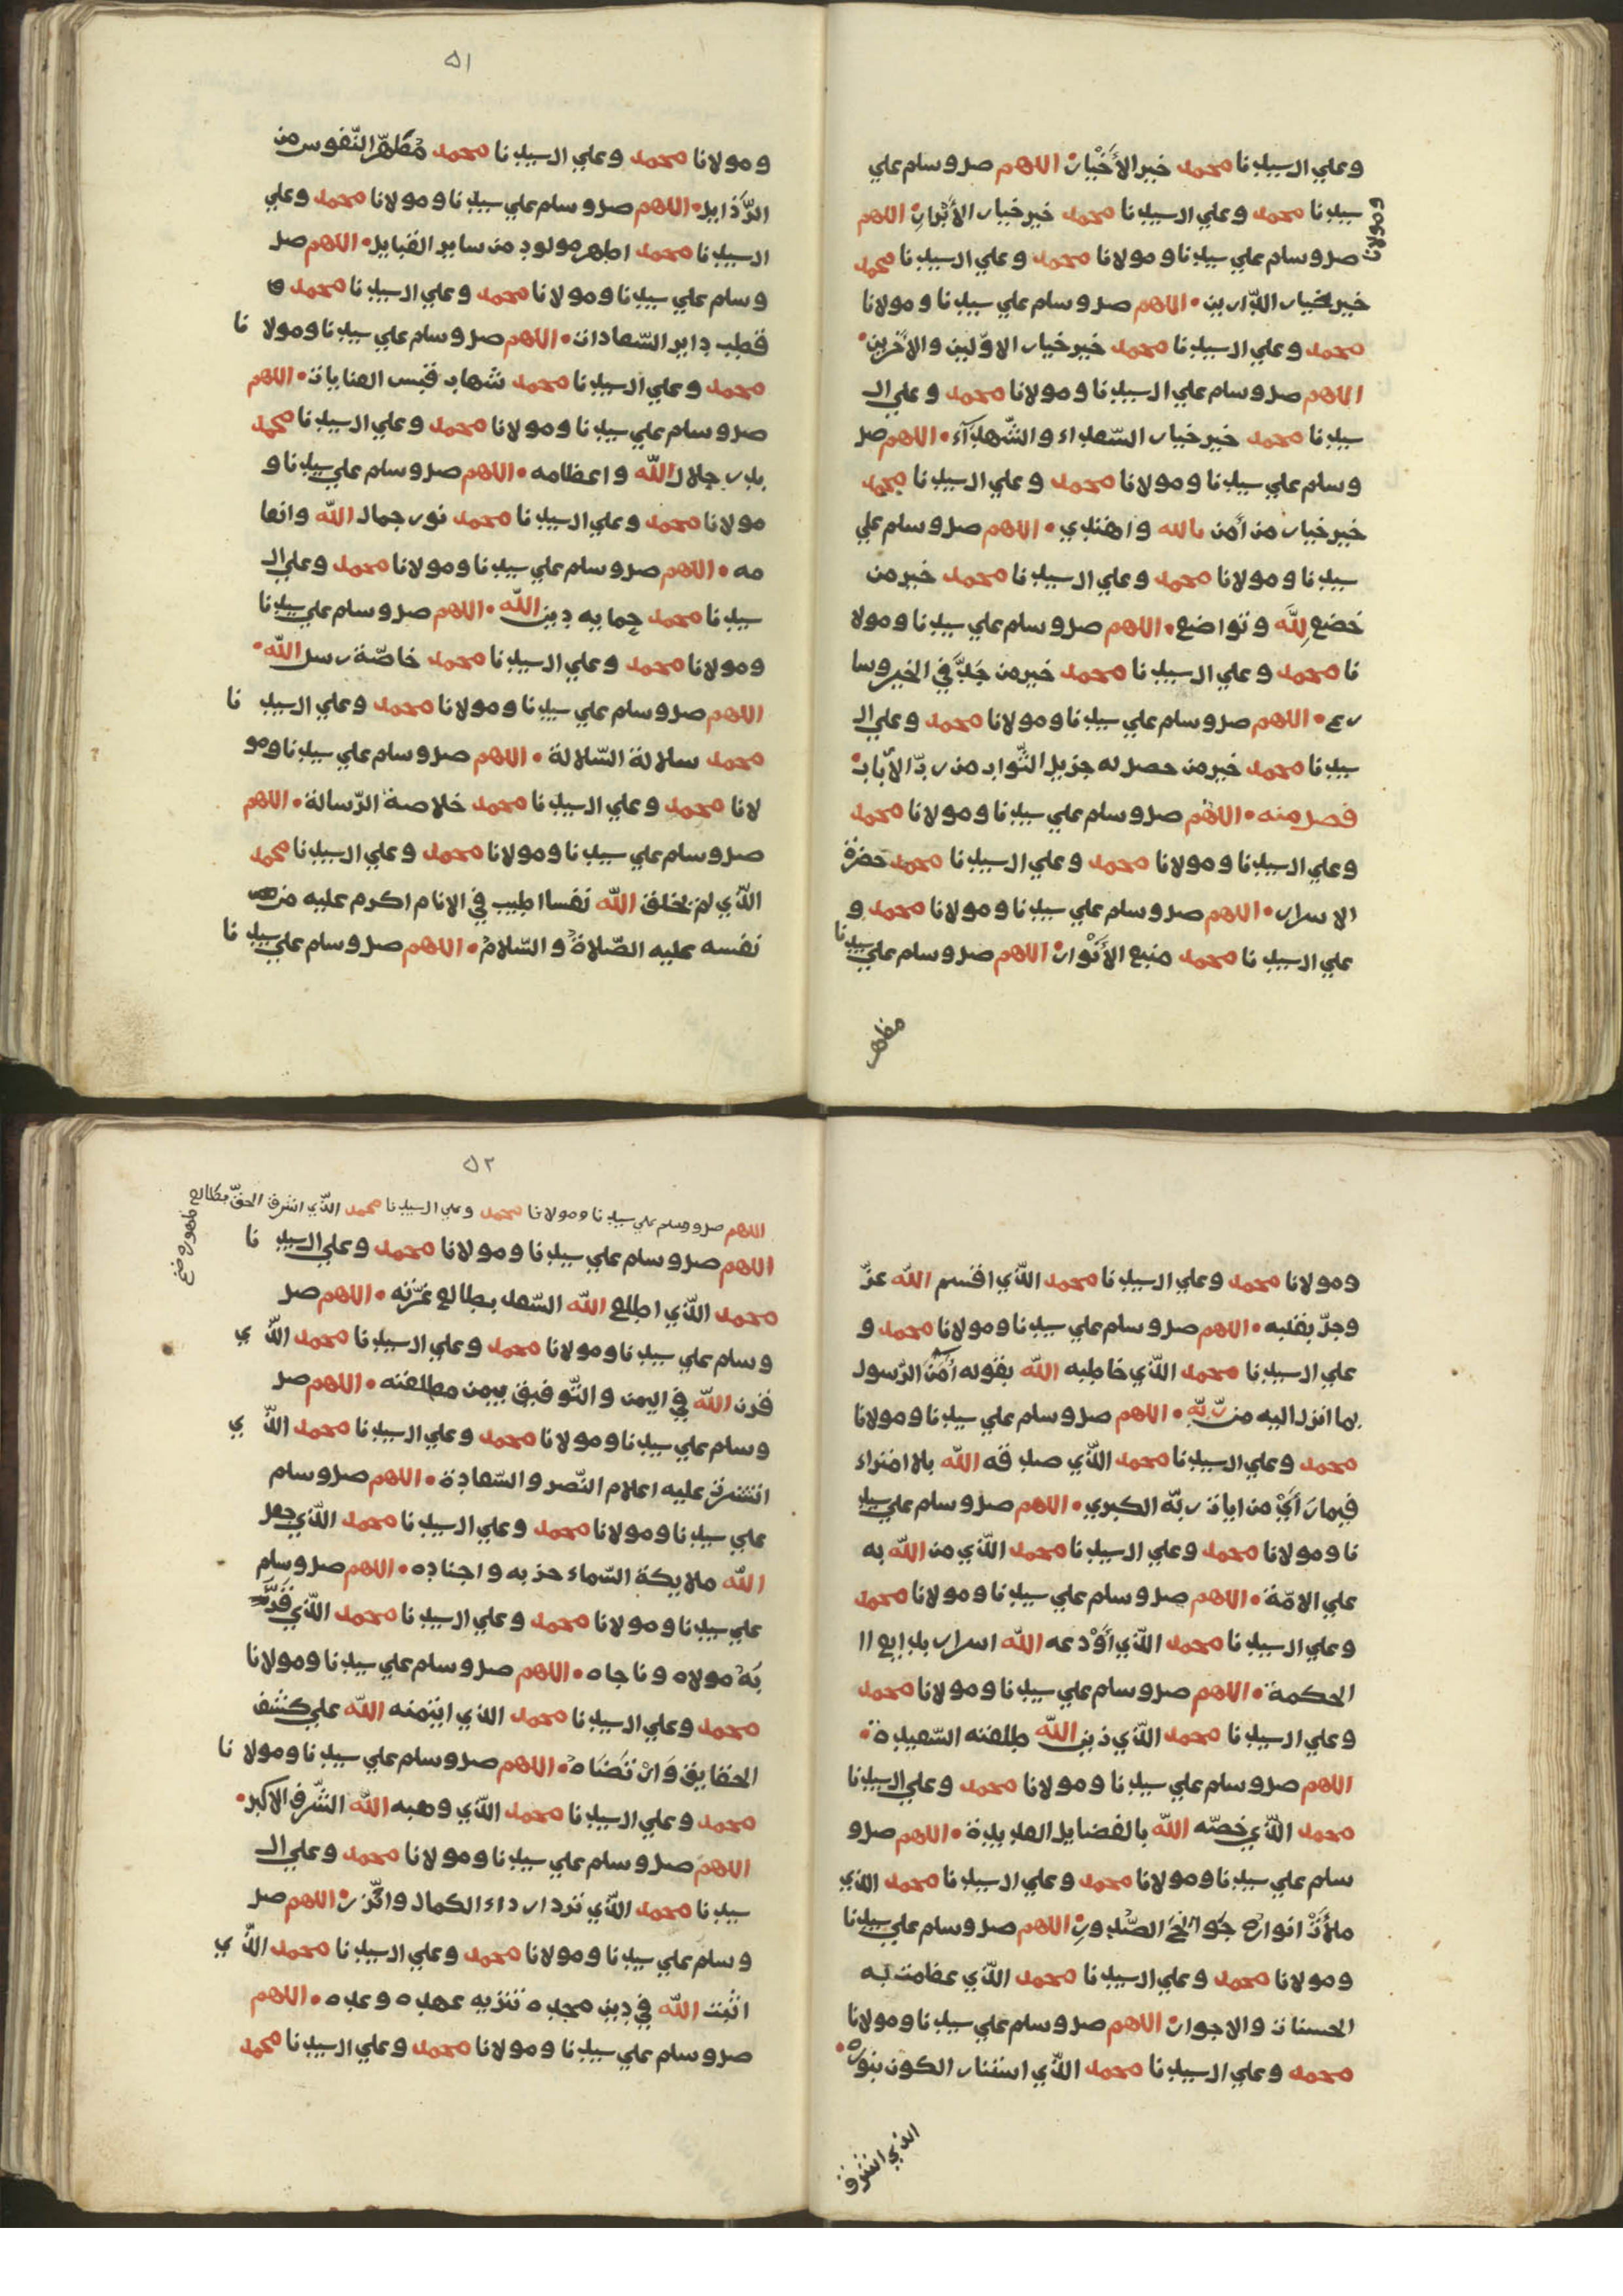 وعلي ال سيدنا محمد خير الأخيار اللهم صل وسلم علي
سيدنا محمد وعلي ال سيدنا محمد خير خيار الأبرار اللهم
ومولانا
صل وسلم علي سيدنا ومولانا محمد وعلي ال سيدنا محمد
خير خيار الدارين اللهم صل وسلم علي سيدنا ومولانا
محمد وعلي ال سيدنا محمد خير خيار الاوّلين والأخرين
اللهم صل وسلم علي ال سيدنا ومولانا محمد وعلي ال
سيدنا محمد خير خيار السّعداء والشّهدآء اللهم صل
وسلم علي سيدنا ومولانا محمد وعلي ال سيدنا محمد
خير خيار من أمن بالله واهتدي اللهم صل وسلم علي
سيدنا ومولانا محمد وعلي ال سيدنا محمد خير من
خضع لِلّه وتواضع اللهم صل وسلم علي سيدنا ومولا
نا محمد وعلي ال سيدنا محمد خير من جَدَّ في الخير وسا
رع اللهم صل وسلم علي سيدنا ومولانا محمد وعلي ال
سيدنا محمد خير من حصل له جزيل الثّواب من ربّ الأباب
فصل منه اللهم صل وسلم علي سيدنا ومولانا محمد
وعلي ال سيدنا ومولانا محمد وعلي ال سيدنا محمد حضرة
الاسرار اللهم صل وسلم علي سيدنا ومولانا محمد و
علي ال سيدنا محمد منبع الأنْوار اللهم صل وسلم علي سيدنا
ومولانا محمد وعلي ال سيدنا محمد مُطَهّر النّفوس من
الرّذايل اللهم صل وسلم علي سيدنا ومولانا محمد وعلي
ال سيدنا محمد اطهر مولود من ساير القبايل اللهم صل
وسلم علي سيدنا ومولانا محمد وعلي ال سيدنا محمد و
قطب داير السّعادات اللهم صل وسلم علي سيدنا ومولا نا
محمد وعلي ال سيدنا محمد شهاب قبس العنايات اللهم
صل وسلم علي سيدنا ومولانا محمد وعلي ال سيدنا محمد
بدر جلال اللّه واعظامه اللهم صل وسلم علي سيدنا و
مولانا محمد وعلي ال سيدنا محمد نور جمال اللّه وانعا
مه اللهم صل وسلم علي سيدنا ومولانا محمد وعلي ال
سيدنا محمد حمايه دين اللّه اللهم صل وسلم علي سيدنا
ومولانا محمد وعلي ال سيدنا محمد خاصّة رسل اللّه
اللهم صل وسلم علي سيدنا ومولانا محمد وعلي ال سيد نا
محمد سلالة السّلالة اللهم صل وسلم علي سيدنا ومو
لانا محمد وعلي ال سيدنا محمد خلاصة الرّسالة اللهم
صل وسلم علي سيدنا ومولانا محمد وعلي ال سيدنا محمد
الّذي لم يخلق اللّه نفسا اطيب في الانام اكرم عليه من
نفسه عليه الصّلاةُ والسّلامُ اللهم صل وسلم علي سيد نا
ومولانا محمد وعلي ال سيدنا محمد الّذي اقسم اللّه عزّ
وجلّ بقلبه اللهم صل وسلم علي سيدنا ومولانا محمد و
علي ال سيدنا محمد الّذي خاطبه اللّه بقوله أمَنَ الرّسول
بما انزل اليه من ربّه اللهم صل وسلم علي سيدنا ومولانا
محمد وعلي ال سيدنا محمد الّذي صدقه اللّه بلا افتراء
فيما رَأيْ من ايات ربّه الكبري اللهم صل وسلم علي سيد
نا ومولانا محمد وعلي ال سيدنا محمد الّذي من اللّه به
علي الامّة اللهم صل وسلم علي سيدنا ومولانا محمد
وعلي ال سيدنا محمد الّذي أوْدعه اللّه اسرار بدايع ا
الحكمة اللهم صل وسلم علي سيدنا ومولانا محمد
وعلي ال سيدنا محمد الّذي زين اللّه طلعته السّعيدة
اللهم صل وسلم علي سيدنا ومولانا محمد وعلي ال سيدنا
محمد الّذي خصّه اللّه بالفضايل العديدة اللهم صل و
سلم علي سيدنا ومولانا محمد وعلي ال سيدنا محمد الذي
ملأتْ انواره جَوانِحَ الصُّدورِ اللهم صل وسلم علي سيدنا
ومولانا محمد وعلي ال سيدنا محمد الّذي عظمت به
الحسنات والاجور اللهم صل وسلم علي سيدنا ومولانا
محمد وعلي ال سيدنا محمد الّذي استنار الكون بنوره
الذي اشرق
اللهم صل وسلم علي سيدنا ومولانا محمد وعلي ال سيدنا محمد الّذي اشرق الحقّ بطالع
اللهم صل وسلم علي سيدنا ومولانا محمد وعلي ال سيد نا
محمد الّذي اطلع اللّه السّعد بطالع عزّته اللهم صل
وسلم علي سيدنا ومولانا محمد وعلي ال سيدنا محمد الّذ ي
قرن اللّه في اليمن والتّوفيق بيمن مطلعته اللهم صل
وسلم علي سيدنا ومولانا محمد وعلي ال سيدنا محمد الّذ ي
انتشرت عليه اعلام النّصر والسّعادة اللهم صل وسلم
علي سيدنا ومولانا محمد وعلي ال سيدنا محمد الّذي جعل
اللّه ملايكة السّماء حزبه واجناده اللهم صل وسلم
علي سيدنا ومولانا محمد وعلي ال سيدنا محمد الّذي قَرَّ
بَهُ مولاه وناجاه اللهم صل وسلم علي سيدنا ومولانا
محمد وعلي ال سيدنا محمد الذي ايتمنه اللّه علي كشف
الحقايق وَارْتَضَاهُ اللهم صل وسلم علي سيدنا ومولا نا
محمد وعلي ال سيدنا محمد الّذي وهبه اللّه الشّرف الاكبر
اللهم صل وسلم علي سيدنا ومولانا محمد وعلي ال
سيدنا محمد الّذي تردا رداء الكمال واتّزر اللهم صل
وسلم علي سيدنا ومولانا محمد وعلي ال سيدنا محمد الّذ ي
اثبت اللّه في دين مجده تنزيه عهده وعده اللهم
صل وسلم علي سيدنا ومولانا محمد وعلي ال سيدنا محمد